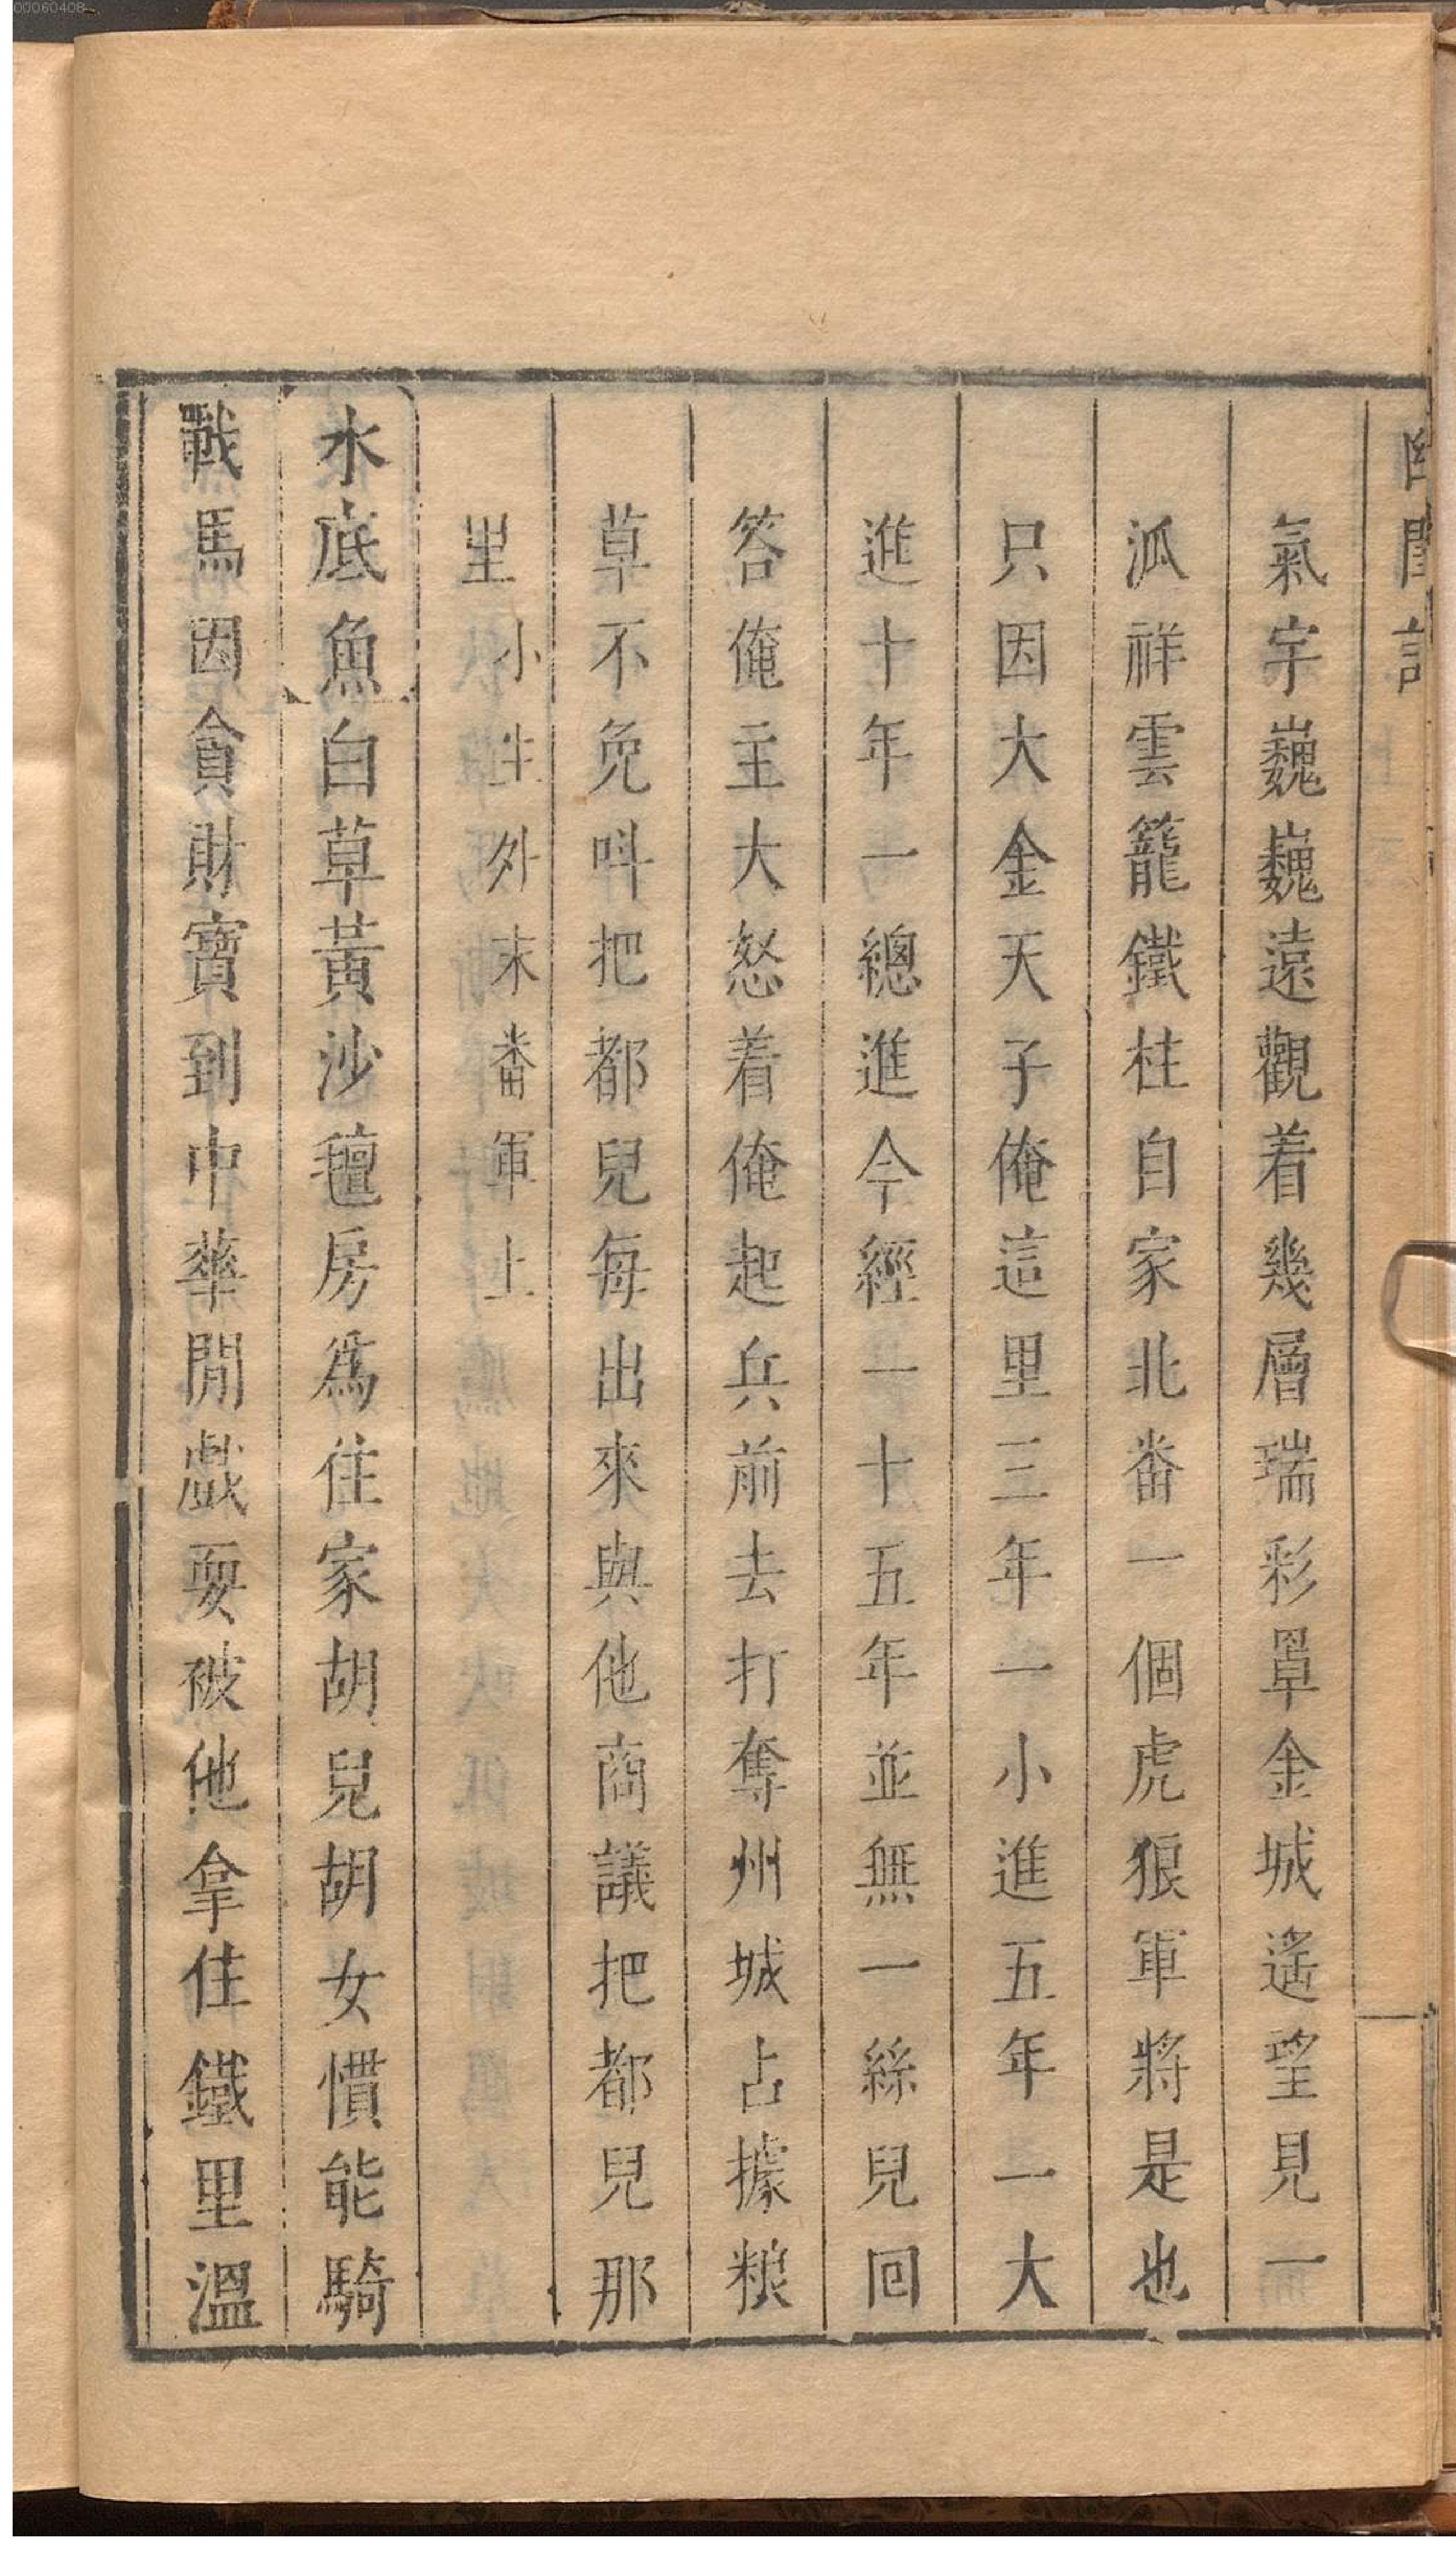 00060408
幽閨記
氣宇巍巍遠觀着幾層瑞彩罩金城遙望見一
泒祥雲籠鐵柱自家北畨一個虎狼軍將是也
只因大金天子俺這里三年一小進五年一大
進十年一總進今經一十五年並無一絲兒回
答俺主大怒着俺起兵前去打奪州城占據粮
草不免呌把都兒每出來與他商議把都兒那
里 小生外末畨軍上
水底魚白草黃沙氊房爲住家胡兒胡女慣能騎
戰馬因貪財寶到中華閒戲耍被他拿住鐵里溫